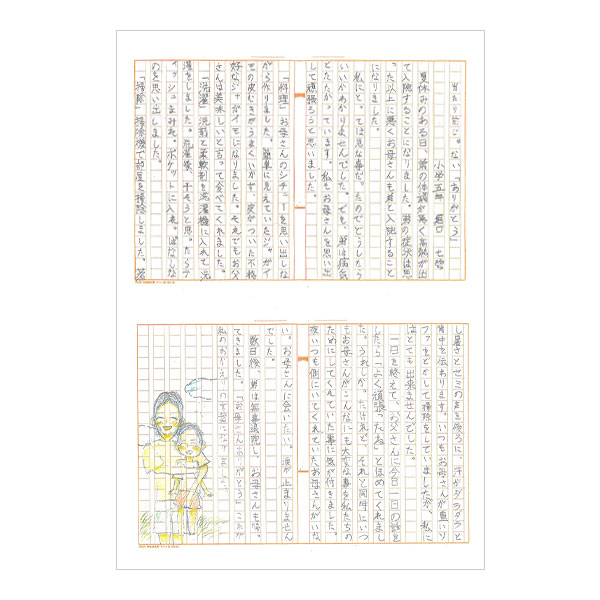 当たり前じゃない「ありがとう」
小学五年 堀口
夏休みのある日、弟の体調が悪く高熱が出
て入院することになりました。弟の症状は思
った以上に悪くお母さんも弟と入院すること
になりました。
私にとっては急な事だったのでどうしたら
いいかわかりませんでした。でも、弟は病気
とたたかっています。私もお母さんを思い出
して頑張ろうと思いました。
「料理」お母さんのシチューを思い出しな
がら作りました。簡単に見えていたジャガイ
モの皮むきがうまくいかず、皮がついた不格
好なジャガイモになりました。それでもお父
さんは美味しいと言って食べてくれました。
「洗濯」洗剤と柔軟剤を洗濯機に入れて洗
濯をしました。洗濯後、干そうと思ったらテ
ィッシュまみれ。ポケットに入れっぱなしな
のを思い出しました。
「掃除」掃除機で部屋を掃除しました。蒸
し暑さとセミの声を後ろに、汗がダラダラと
背中を伝わります。いつもお母さんが重いソ
ファをどかして掃除をしていましたが、私に
はとても出来ませんでした。
一日を終えて、お父さんに今日一日の話を
したら「よく頑張ったね」とほめてくれまし
た。うれしかったけれど、それと同時にいつ
もお母さんがこんなにも大変な事を私たちの
ためにしてくれていた事に気が付きました。
夜いつも側にいてくれていたお母さんがいな
い。お母さんに会いたい。涙が止まりません
でした。
数日後、弟は無事退院し、お母さんも帰っ
てきました。「お母さんありがとう」これが
私の